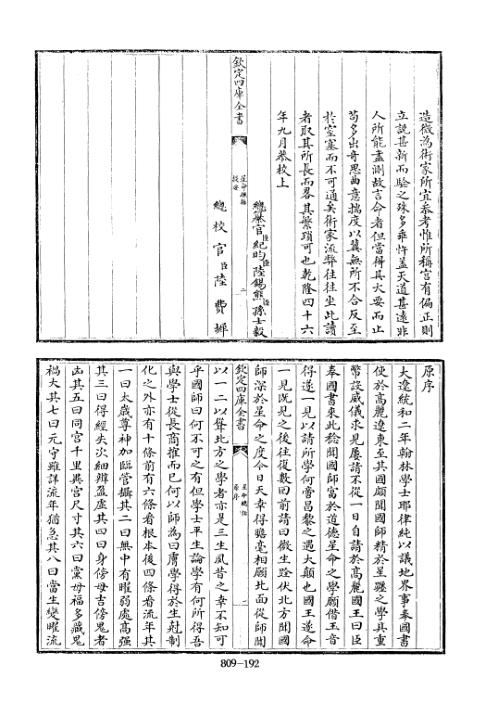 造微為術家所宜叅考惟所稱宫有偏正則
立說甚新而驗之殊多乖忤蓋天道甚遠非
人所能盡測故言命者但當得其大要而止
苟多出奇思曲意揣度以冀無所不合反至
於窒塞而不可通矣術家流弊往往坐此讀
者取其所長而畧其繁瑣可也乾隆四十六
年九月恭校上
欽定四庫全書
星命總括
提要
二
總纂官臣紀昀臣陸錫熊臣孫士毅
總校官臣陸費墀
原序
大遼統和二年翰林學士耶律純以議地界事奉國書
使於高麗遼東至其國頗聞國師精於星躔之學具重
幣設威儀求見屢請不從一日自請於高麗國王曰臣
奉國書來此稔聞國師富於道德星命之學願借玉音
得遂一見以請所學何啻昌黎之遇大顛也國王遂命
一見既見之後往復數回前請曰微生跧伏北方聞國
師深於星命之度今日天幸得瞻毫相願北面從師聞
欽定四庫全書
星命總括
原序
一
以一二以聲北方之學者亦是三生夙昔之幸不知可
乎國師曰何不可之有但學士平生論學有何所得吾
與學士從長商搉而已何以師為曰膚學得於生尅制
化之外亦有十條前有六條看根本後四條看流年其
一曰太歲尊神加臨管攝其二曰無中有曜弱處高强
其三曰得經失次細辨盈虛其四曰身傍母吉傍鬼者
凶其五曰同宫千里異宫尺寸其六曰黨母福多黨鬼
禍大其七曰元守雖詳流年猶急其八曰當生變曜流
809-192